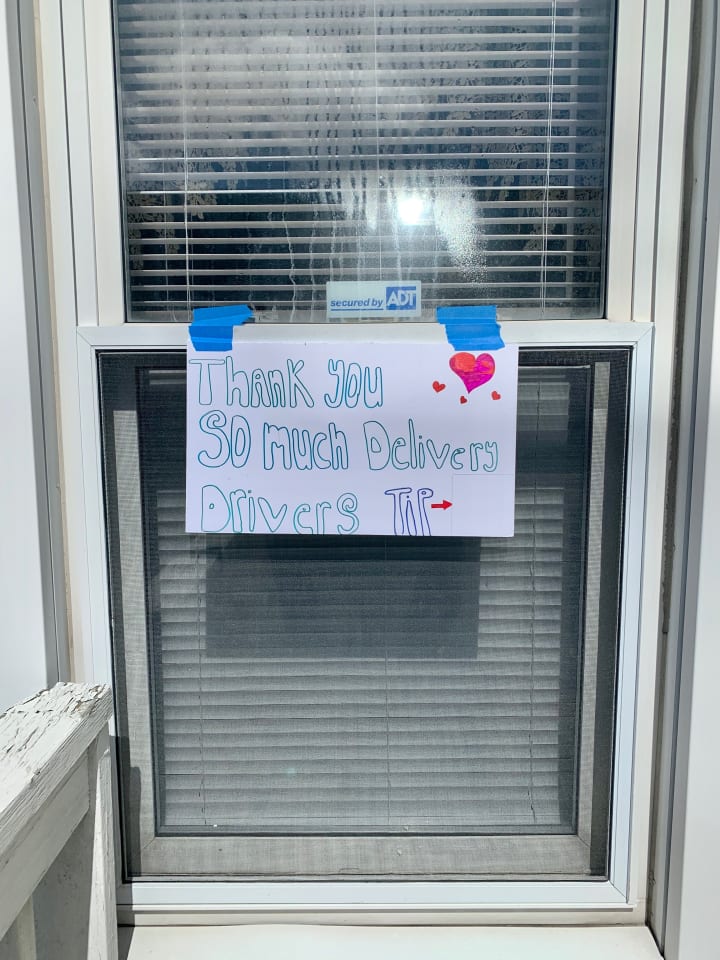 secured by ADT
Thank you
So much Delivery
Drivers TIP